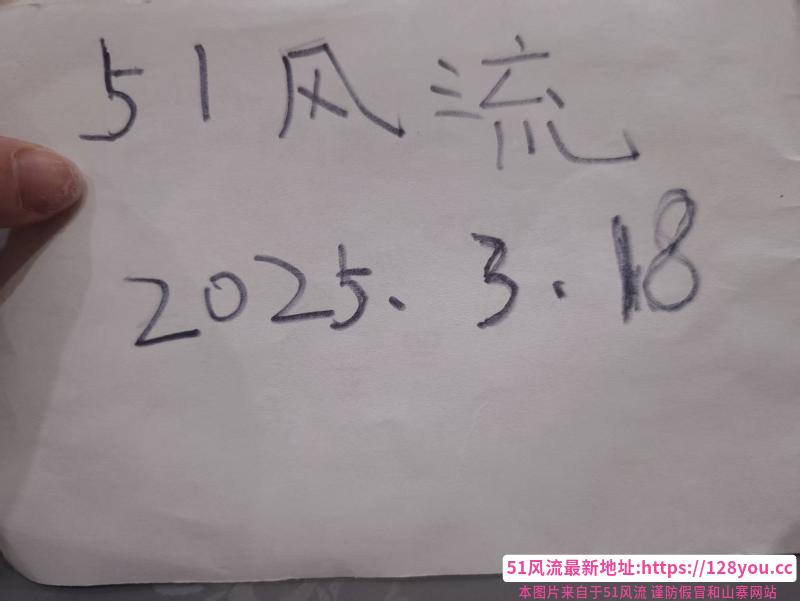 51风流
2025.3.18
51风流最新地址:https://128you.cc
本图片来自于51风流 谨防假冒和山寨网站